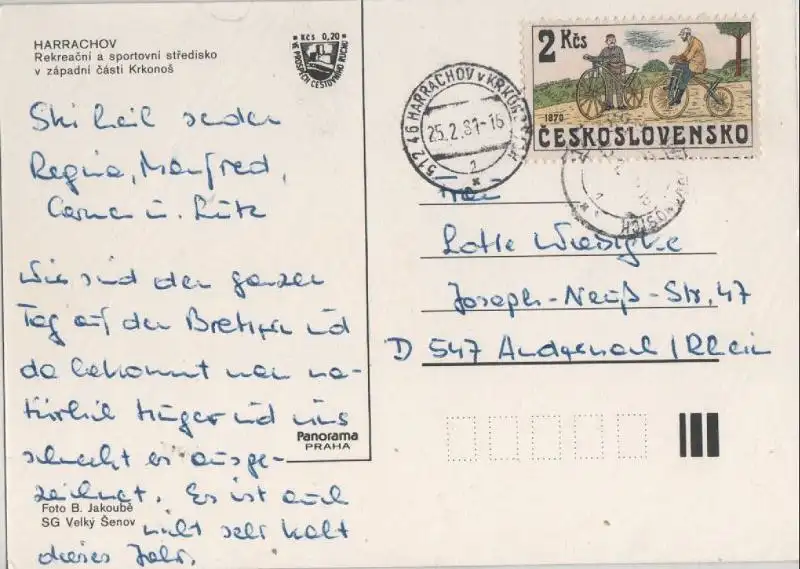 HARRACHOV
Rekreační a sportovní středisko
v západní části Krkonoš
Kčs 0,20
VE PROSPĚCH CESTOVNÍHO RUCHU
Ski heil senden
Regina, Manfred,
u. Lutz
Wir sind den ganzen
Tag auf den Brettern und
da bekommt man na-
türlich Hunger und uns
schmeckt es ausge-
zeichnet. Es ist auch
nicht sehr kalt
dieses Jahr.
Panorama
PRAHA
Foto B. Jakoubě
SG Velký Šenov
2 Kčs
1870
ČESKOSLOVENSKO
512 46 HARRACHOV v KRKONOŠÍCH
25.2.81-16
2
Frau
Lotte
Joseph-Neuß-Str. 47
D 547 Andernach/Rhein